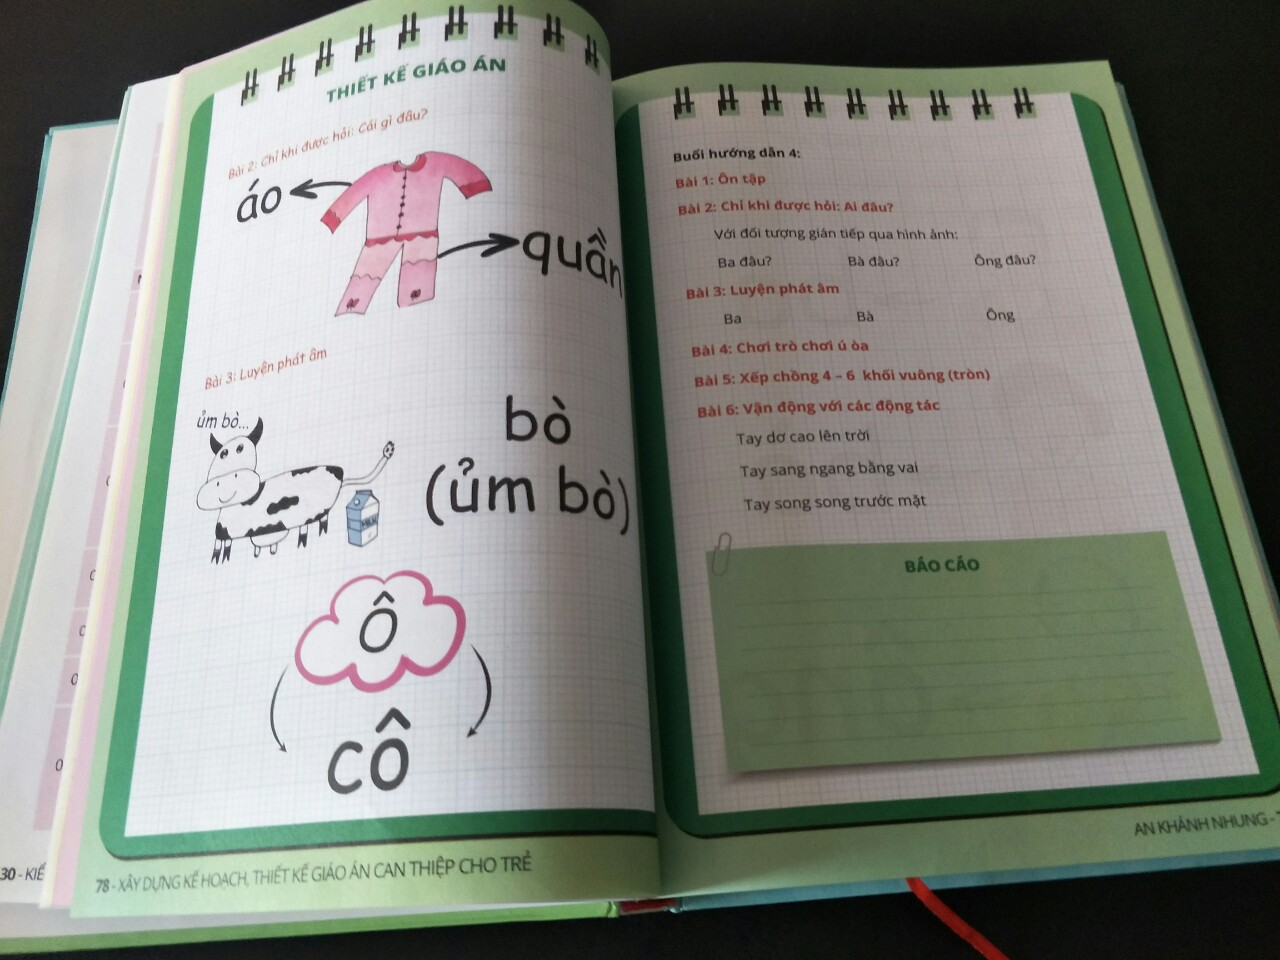 THIẾT KẾ GIÁO ÁN
Bài 2: Chỉ khi được hỏi: Cái gì đâu?
áo
quần
Bài 3: Luyện phát âm
ủm bò...
bò
(ủm bò)
MILK
Ô
CÔ
78 - XÂY DỰNG KẾ HOẠCH, THIẾT KẾ GIÁO ÁN CAN THIỆP CHO TRẺ
30 - KIẾ
Buổi hướng dẫn 4:
Bài 1: Ôn tập
Bài 2: Chỉ khi được hỏi: Ai đâu?
Với đối tượng gián tiếp qua hình ảnh:
Ba đâu? Bà đâu? Ông đâu?
Bài 3: Luyện phát âm
Ba Bà Ông
Bài 4: Chơi trò chơi ú òa
Bài 5: Xếp chồng 4 – 6 khối vuông (tròn)
Bài 6: Vận động với các động tác
Tay dơ cao lên trời
Tay sang ngang bằng vai
Tay song song trước mặt
BÁO CÁO
AN KHÁNH NHUNG -